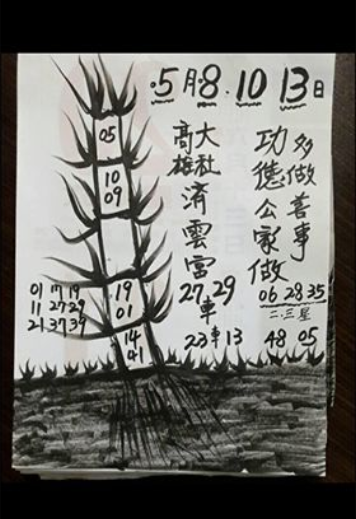 ·5月·8·10 13日
多做善事
功德公家做
高雄
大社
済雲宮
27 29
車
23車13
06 28 35
二·三星
48 05
05
10
09
19
01
14
41
01 17 19
11 27 29
21 37 39